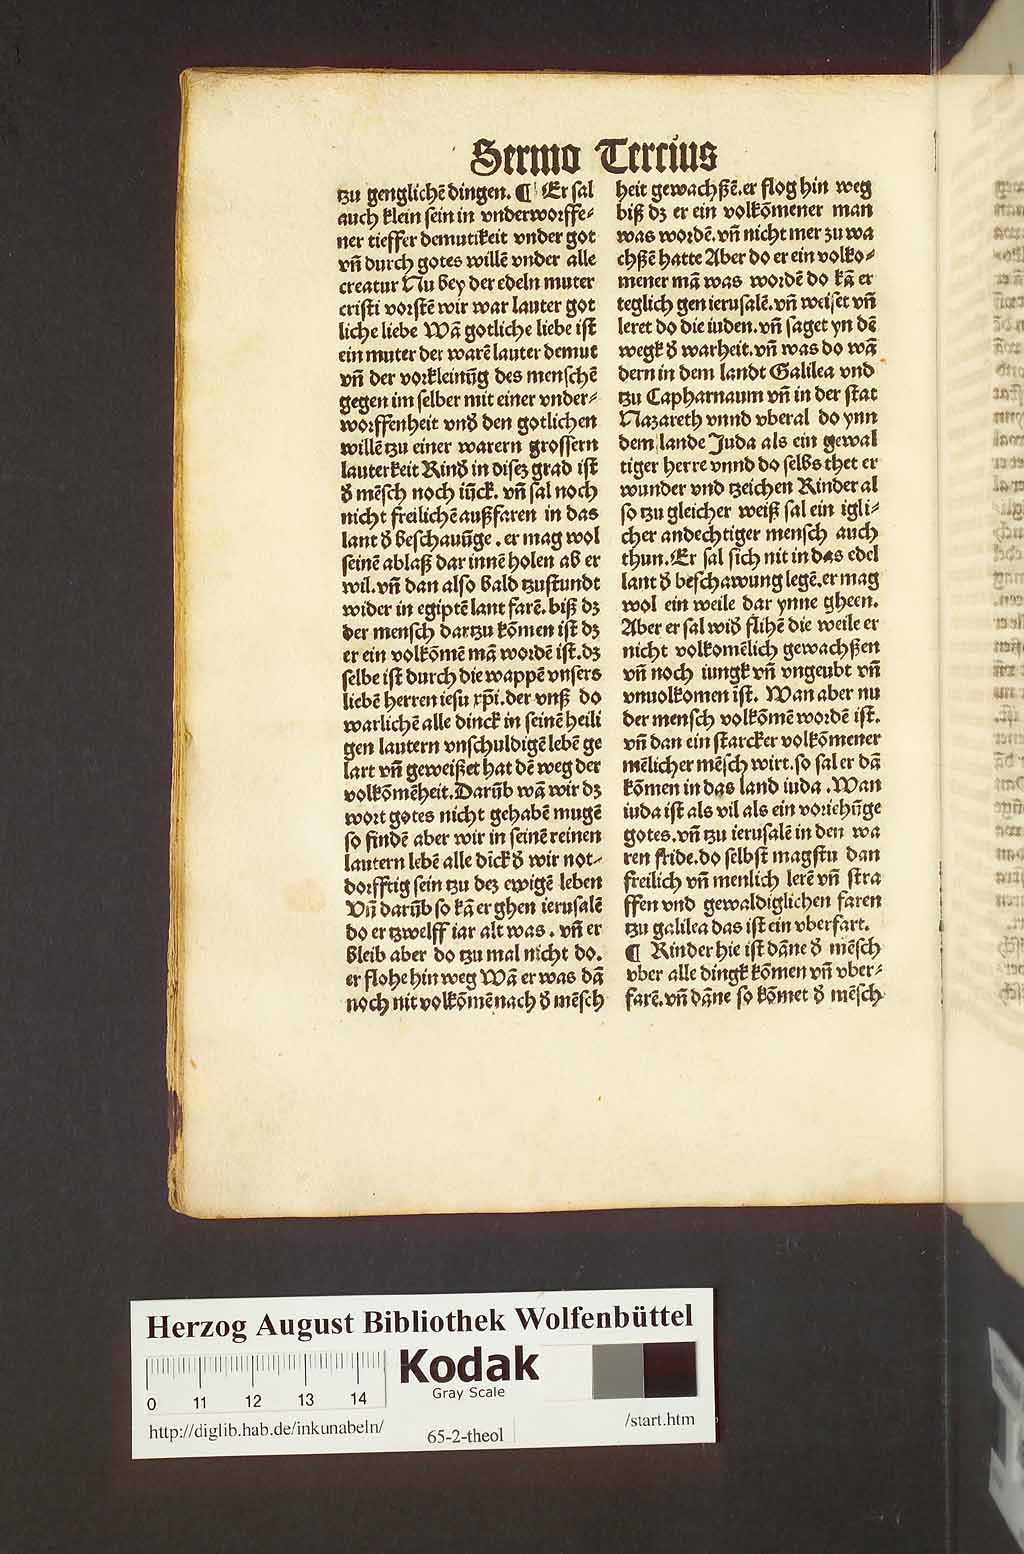 Sermo Tercius
tzu genglichē dingen. ¶ Er sal
auch klein sein in vnderworffe⸗
ner tieffer demutikeit vnder got
vn̄ durch gotes willē vnder alle
creatur Nu bey der edeln muter
cristi vorstē wir war lauter got
liche liebe Wā gotliche liebe ist
ein muter der warē lauter demut
vn̄ der vorkleinūg des menschē
gegen im selber mit einer vnder⸗
worffenheit vnd̄ den gotlichen
willē tzu einer warern grossern
lauterkeit Rind̄ in disez grad ist
d̄ mēsch noch iūck. vn̄ sal noch
nicht freilichē außfaren in das
lant d̄ beschauūge . er mag wol
seinē ablaß dar innē holen ab er
wil. vn̄ dan also bald tzustundt
wider in egiptē lant farē. biß dz
der mensch dartzu kōmen ist dz
er ein volkōmē mā wordē ist. dz
selbe ist durch die wappē vnsers
liebē herren iesu xp̄i. der vnß do
warlichē alle dinck in seinē heili
gen lautern vnschuldigē lebē ge
lart vn̄ geweißet hat dē weg der
volkōmēheit. Darūb wā wir dz
wort gotes nicht gehabē mugē
so findē aber wir in seinē reinen
lautern lebē alle dīck d̄ wir not⸗
dorfftig sein tzu dez ewigē leben
Vn̄ darūb so kā er ghen ierusalē
do er tzwelff iar alt was . vn̄ er
bleib aber do tzu mal nicht do.
er flohe hin weg Wā er was dā
noch nit volkōmē nach d̄ mēsch
heit gewachßē. er flog hin weg
biß dz er ein volkōmener man
was wordē. vn̄ nicht mer zu wa
chßē hatte Aber do er ein volko⸗
mener mā was wordē do kā er
teglich gen ierusalē. vn̄ weiset vn̄
leret do die iuden. vn̄ saget yn dē
wegk d̄ warheit. vn̄ was do wā
dern in dem landt Galilea vnd
tzu Capharnaum vn̄ in der stat
Nazareth vnnd vberal do ynn
dem lande Juda als ein gewal
tiger herre vnnd do selbs thet er
wunder vnd tzeichen Rinder al
so tzu gleicher weiß sal ein igli⸗
cher andechtiger mensch auch
thun. Er sal sich nit in das edel
lant d̄ beschawung legē. er mag
wol ein weile dar ynne gheen.
Aber er sal wid̄ flihē die weile er
nicht volkomēlich gewachßen
vn̄ noch iungk vn̄ vngeubt vn̄
vnuolkomen ist. Wan aber nu
der mensch volkōmē wordē ist.
vn̄ dan ein starcker volkōmener
mēlicher mēsch wirt. so sal er dā
kōmen in das land iuda . Wan
iuda ist als vil als ein voriehūge
gotes. vn̄ tzu ierusalē in den wa
ren fride. do selbst magstu dan
freilich vn̄ menlich lerē vn̄ stra
ffen vnd gewaldiglichen faren
tzu galilea das ist ein vberfart.
¶ Rinder hie ist dāne d̄ mēsch
vber alle dingk kōmen vn̄ vber⸗
farē. vn̄ dāne so kōmet d̄ mēsch
Herzog August Bibliothek Wolfenbüttel
Kodak
Gray Scale
0 11 12 13 14
http://diglib.hab.de/inkunabeln/
65-2-theol
/start.htm